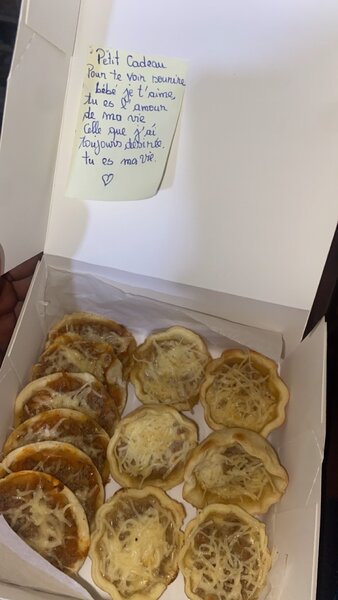 Petit Cadeau
Pour te voir sourire
bébé je t'aime,
tu es l'amour
de ma vie
Celle que j'ai
toujours désirée.
tu es ma vie.